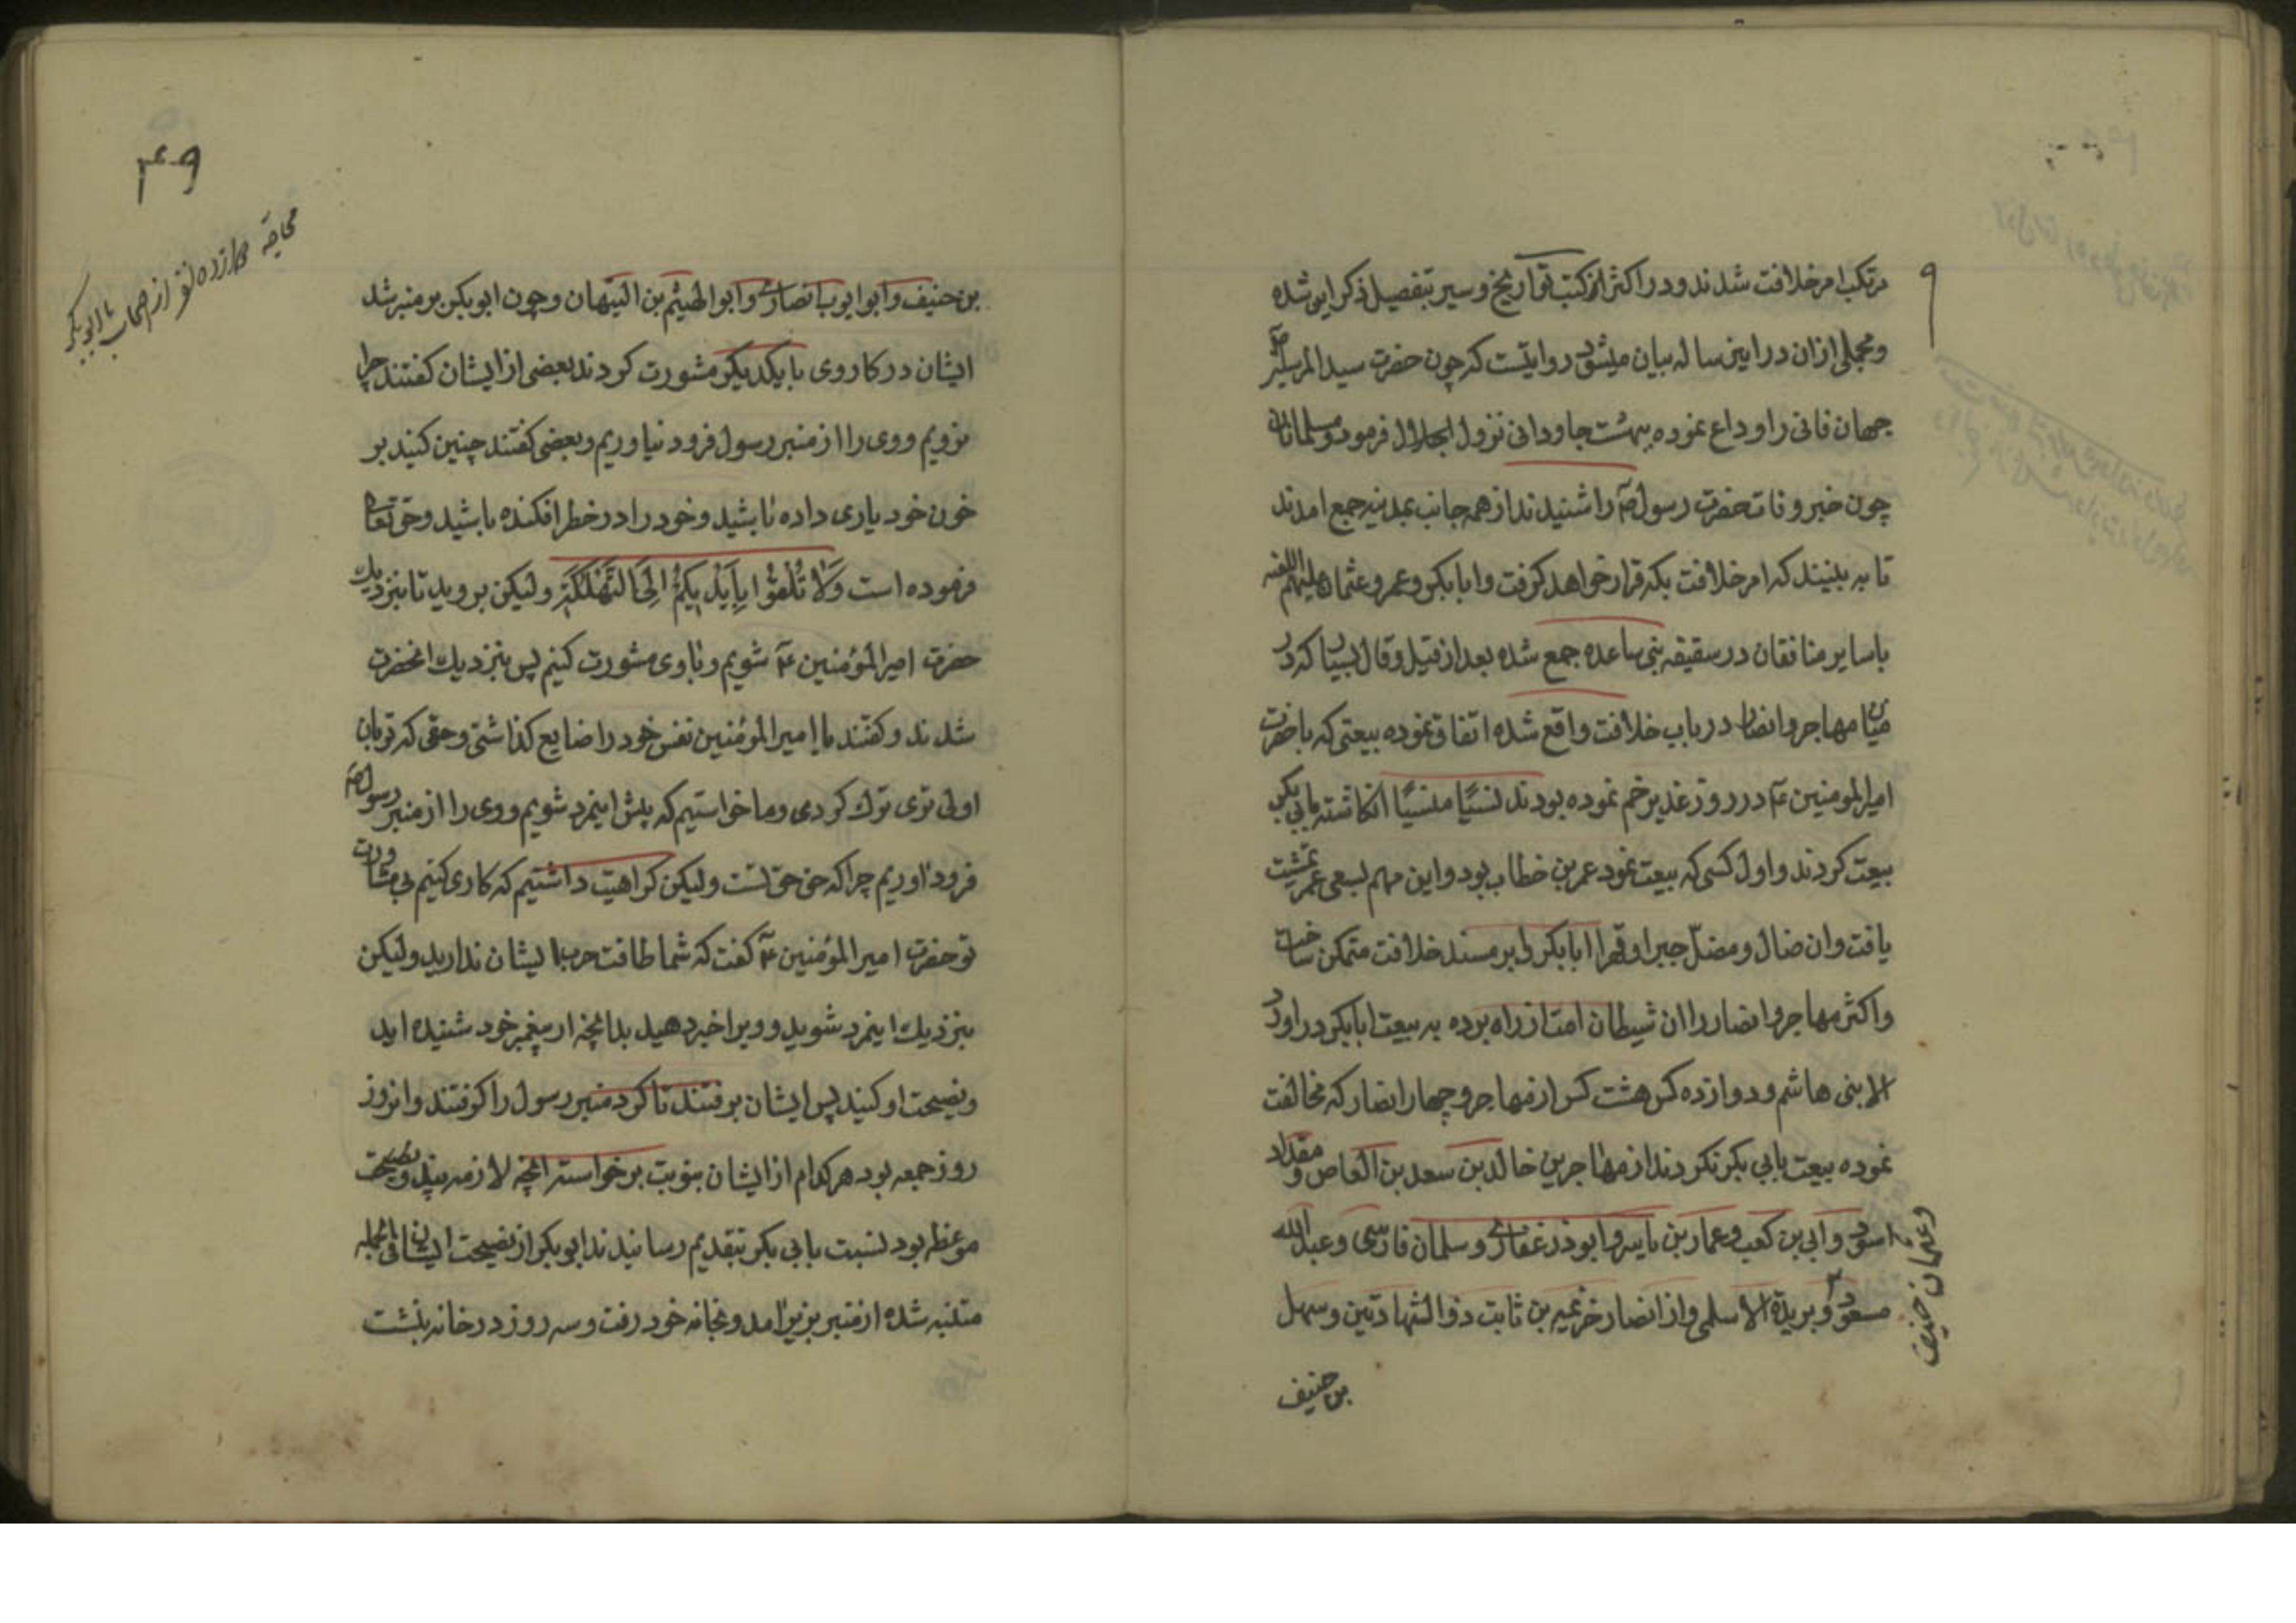 مرتکب امر خلافت شدند و در اکثر از کتب تواریخ و سیر بتفصیل ذکر این شده
و مجملی از ان در این رساله بیان میشود روایتست که چون حضرت سید المرسلین ص
جهان فانی را وداع نموده ببهشت جاودانی نزول اجلال فرمود و مسلمانان
چون خبر وفات حضرت رسول ص را شنیدند از همه جانب بمدینه جمع امدند
تا به بینند که امر خلافت بکه قرار خواهد گرفت و ابا بکر و عمر و عثمان علیهم اللعنه
با سایر منافقان در سقیفه بنی ساعده جمع شده بعد از قیل و قال بسیار که در
میان مهاجر و انصار در باب خلافت واقع شده اتفاق نموده بیعتی که با حضرت
امیر المومنین ع در روز غدیر خم نموده بودند نسیًا منسیًا انکاشته بابی بکر
بیعت کردند و اول کسی که بیعت نمود عمر بن خطاب بود و این مهم بسعی عمر تمشیت
یافت و ان ضال و مضلّ جبرا و قهرا ابا بکر را بر مسند خلافت متمکن ساخت
و اکثر مهاجر و انصار را ان شیطان امت از راه برده به بیعت ابا بکر در اورد
الا بنی هاشم و دوازده کس هشت کس از مهاجر و چهار انصار که مخالفت
نموده بیعت بابی بکر نکردند از مهاجرین خالد بن سعد بن العاص و مقداد
اسود و ابی بن کعب و عمار بن یاسر و ابوذر غفاری و سلمان فارسی و عبد الله
مسعود و بریدة الاسلمی و از انصار خزیمه بن ثابت ذو الشهادتین و سهل
و عثمان حنیف
بن حنیف
۴۹
محاجه دوازده نفر از صحابه با ابی بکر
بن حنیف و ابو ایوب انصاری و ابو الهیثم بن التیهان و چون ابو بکر بر منبر شد
ایشان در کار وی با یکدیکر مشورت کردند بعضی از ایشان کفتند چرا
نرویم و وی را از منبر رسول فرود نیاوریم و بعضی کفتند چنین کنید بر
خون خود یاری داده باشید و خود را در خطر افکنده باشید و حق تعالی
فرموده است وَلَا تُلْقُوا بِاَیْدِیکُمْ اِلَی التَّهْلُکَةِ و لیکن بروید تا بنزدیك
حضرت امیر المؤمنین ع شویم و با وی مشورت کنیم پس بنزدیك انحضرت
شدند و کفتند یا امیر المؤمنین نفس خود را ضایع کذاشتی و حقی که تو بان
اولی تری ترك کردی و ما خواستیم که پیش اینمرد شویم و وی را از منبر رسول ص
فرود اوریم چرا که حق حق تست و لیکن کراهیت داشتیم که کاری کنیم بی مشاورت
تو حضرت امیر المؤمنین ع کفت که شما طاقت حرب ایشان ندارید و لیکن
بنزدیك اینمرد شوید و ویرا خبر دهید بدانچه از پیغمبر خود شنیده اید
و نصیحت او کنید پس ایشان برفتند تا کرد منبر رسول را کرفتند و انروز
روز جمعه بود هر کدام از ایشان بنوبت برخواسته انچه لازمه پند و نصیحت
موعظه بود نسبت بابی بکر بتقدیم رسانیدند ابو بکر از نصیحت ایشان فی الجمله
متنبه شده از منبر بزیر امد و بخانه خود رفت و سه روز در خانه بنشست